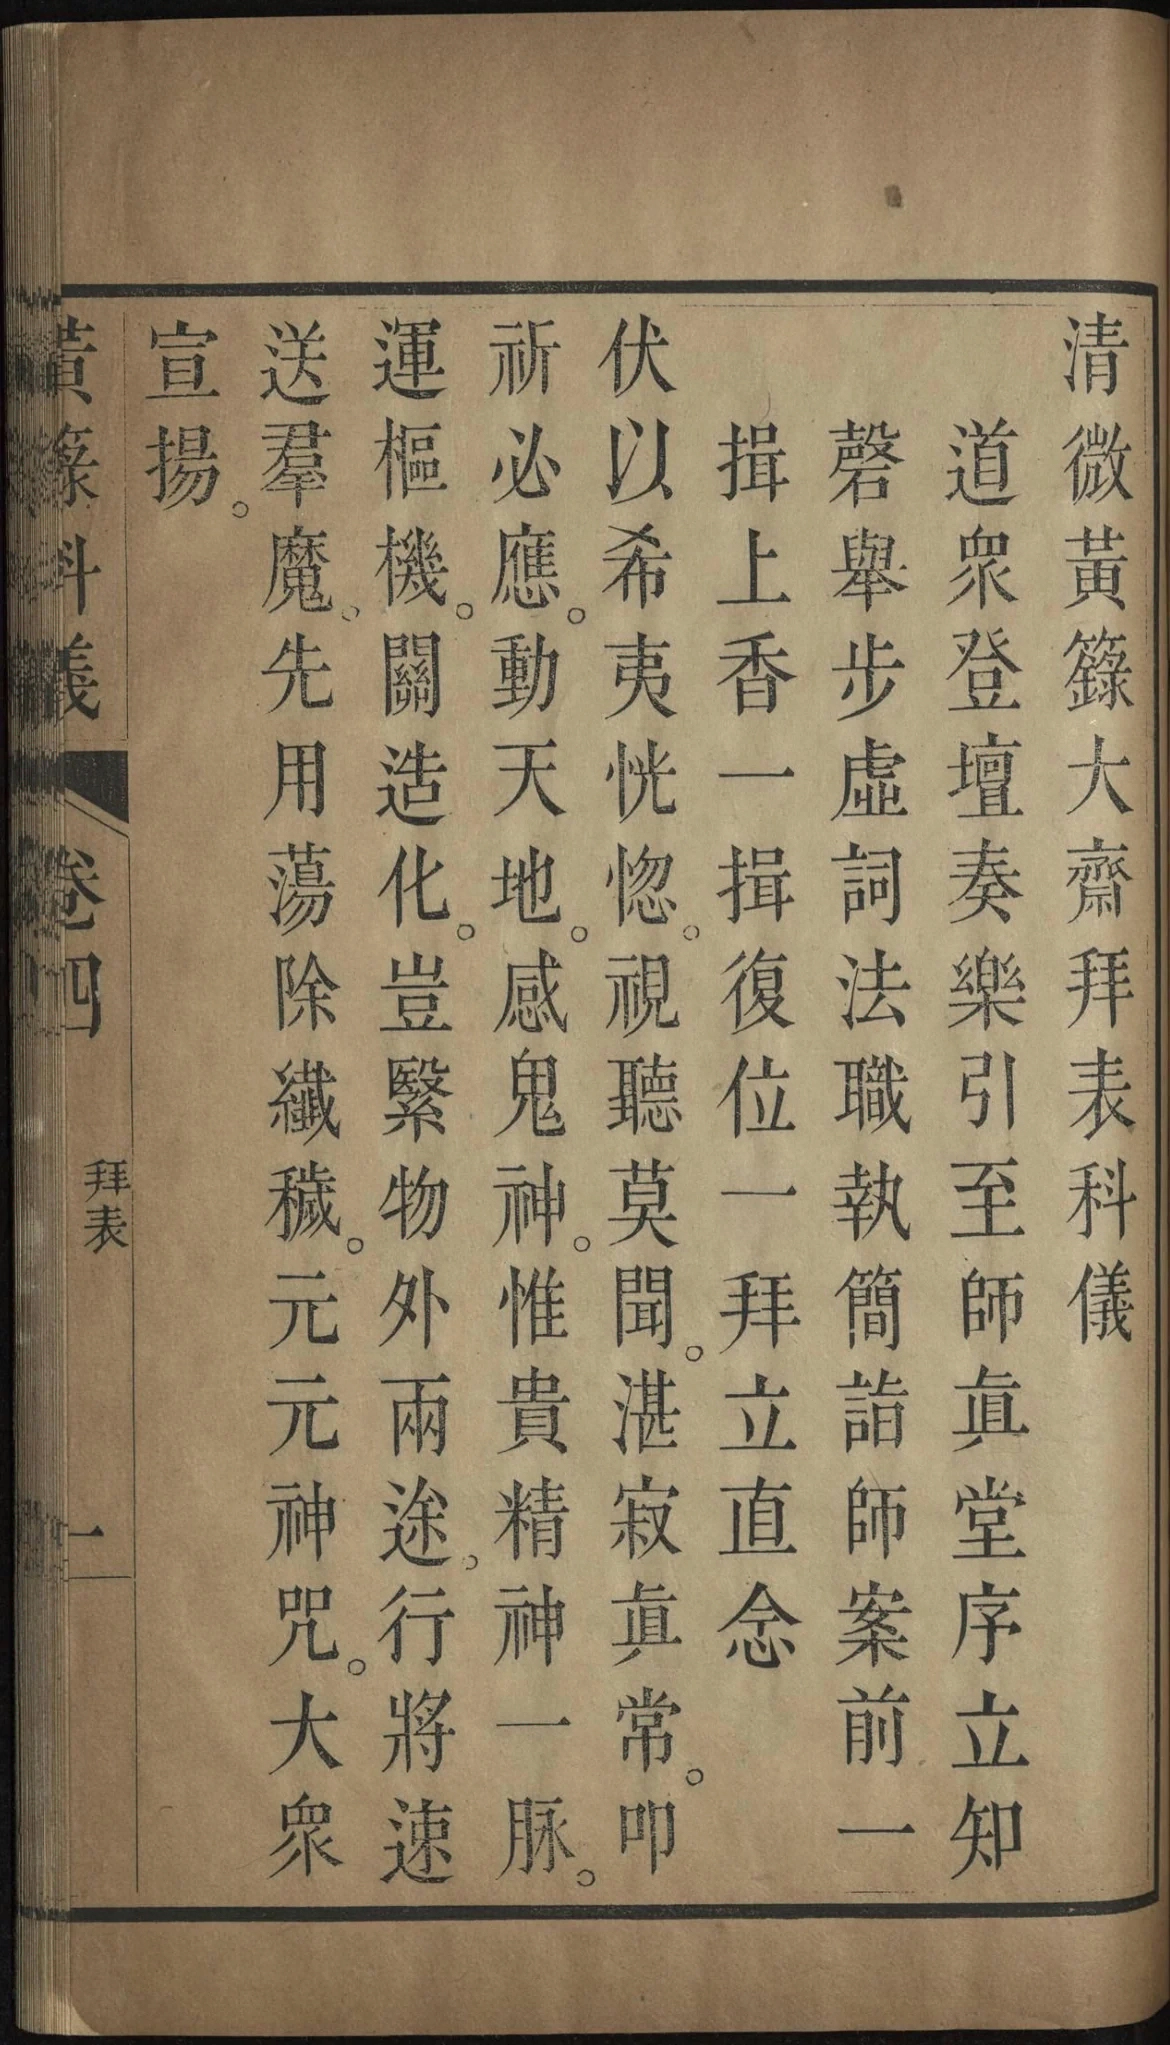 清微黃籙大齋拜表科儀
道衆登壇奏樂引至師眞堂序立知
磬舉步虛詞法職執簡詣師案前一
揖上香一揖復位一拜立直念
伏以希夷恍惚。視聽莫聞。湛寂眞常。叩
祈必應。動天地。感鬼神。惟貴精神一脉。
運樞機。關造化。豈緊物外兩途。行將速
送羣魔。先用蕩除纖穢。元元神咒。大衆
宣揚。
黃籙科儀 卷四 拜表 一